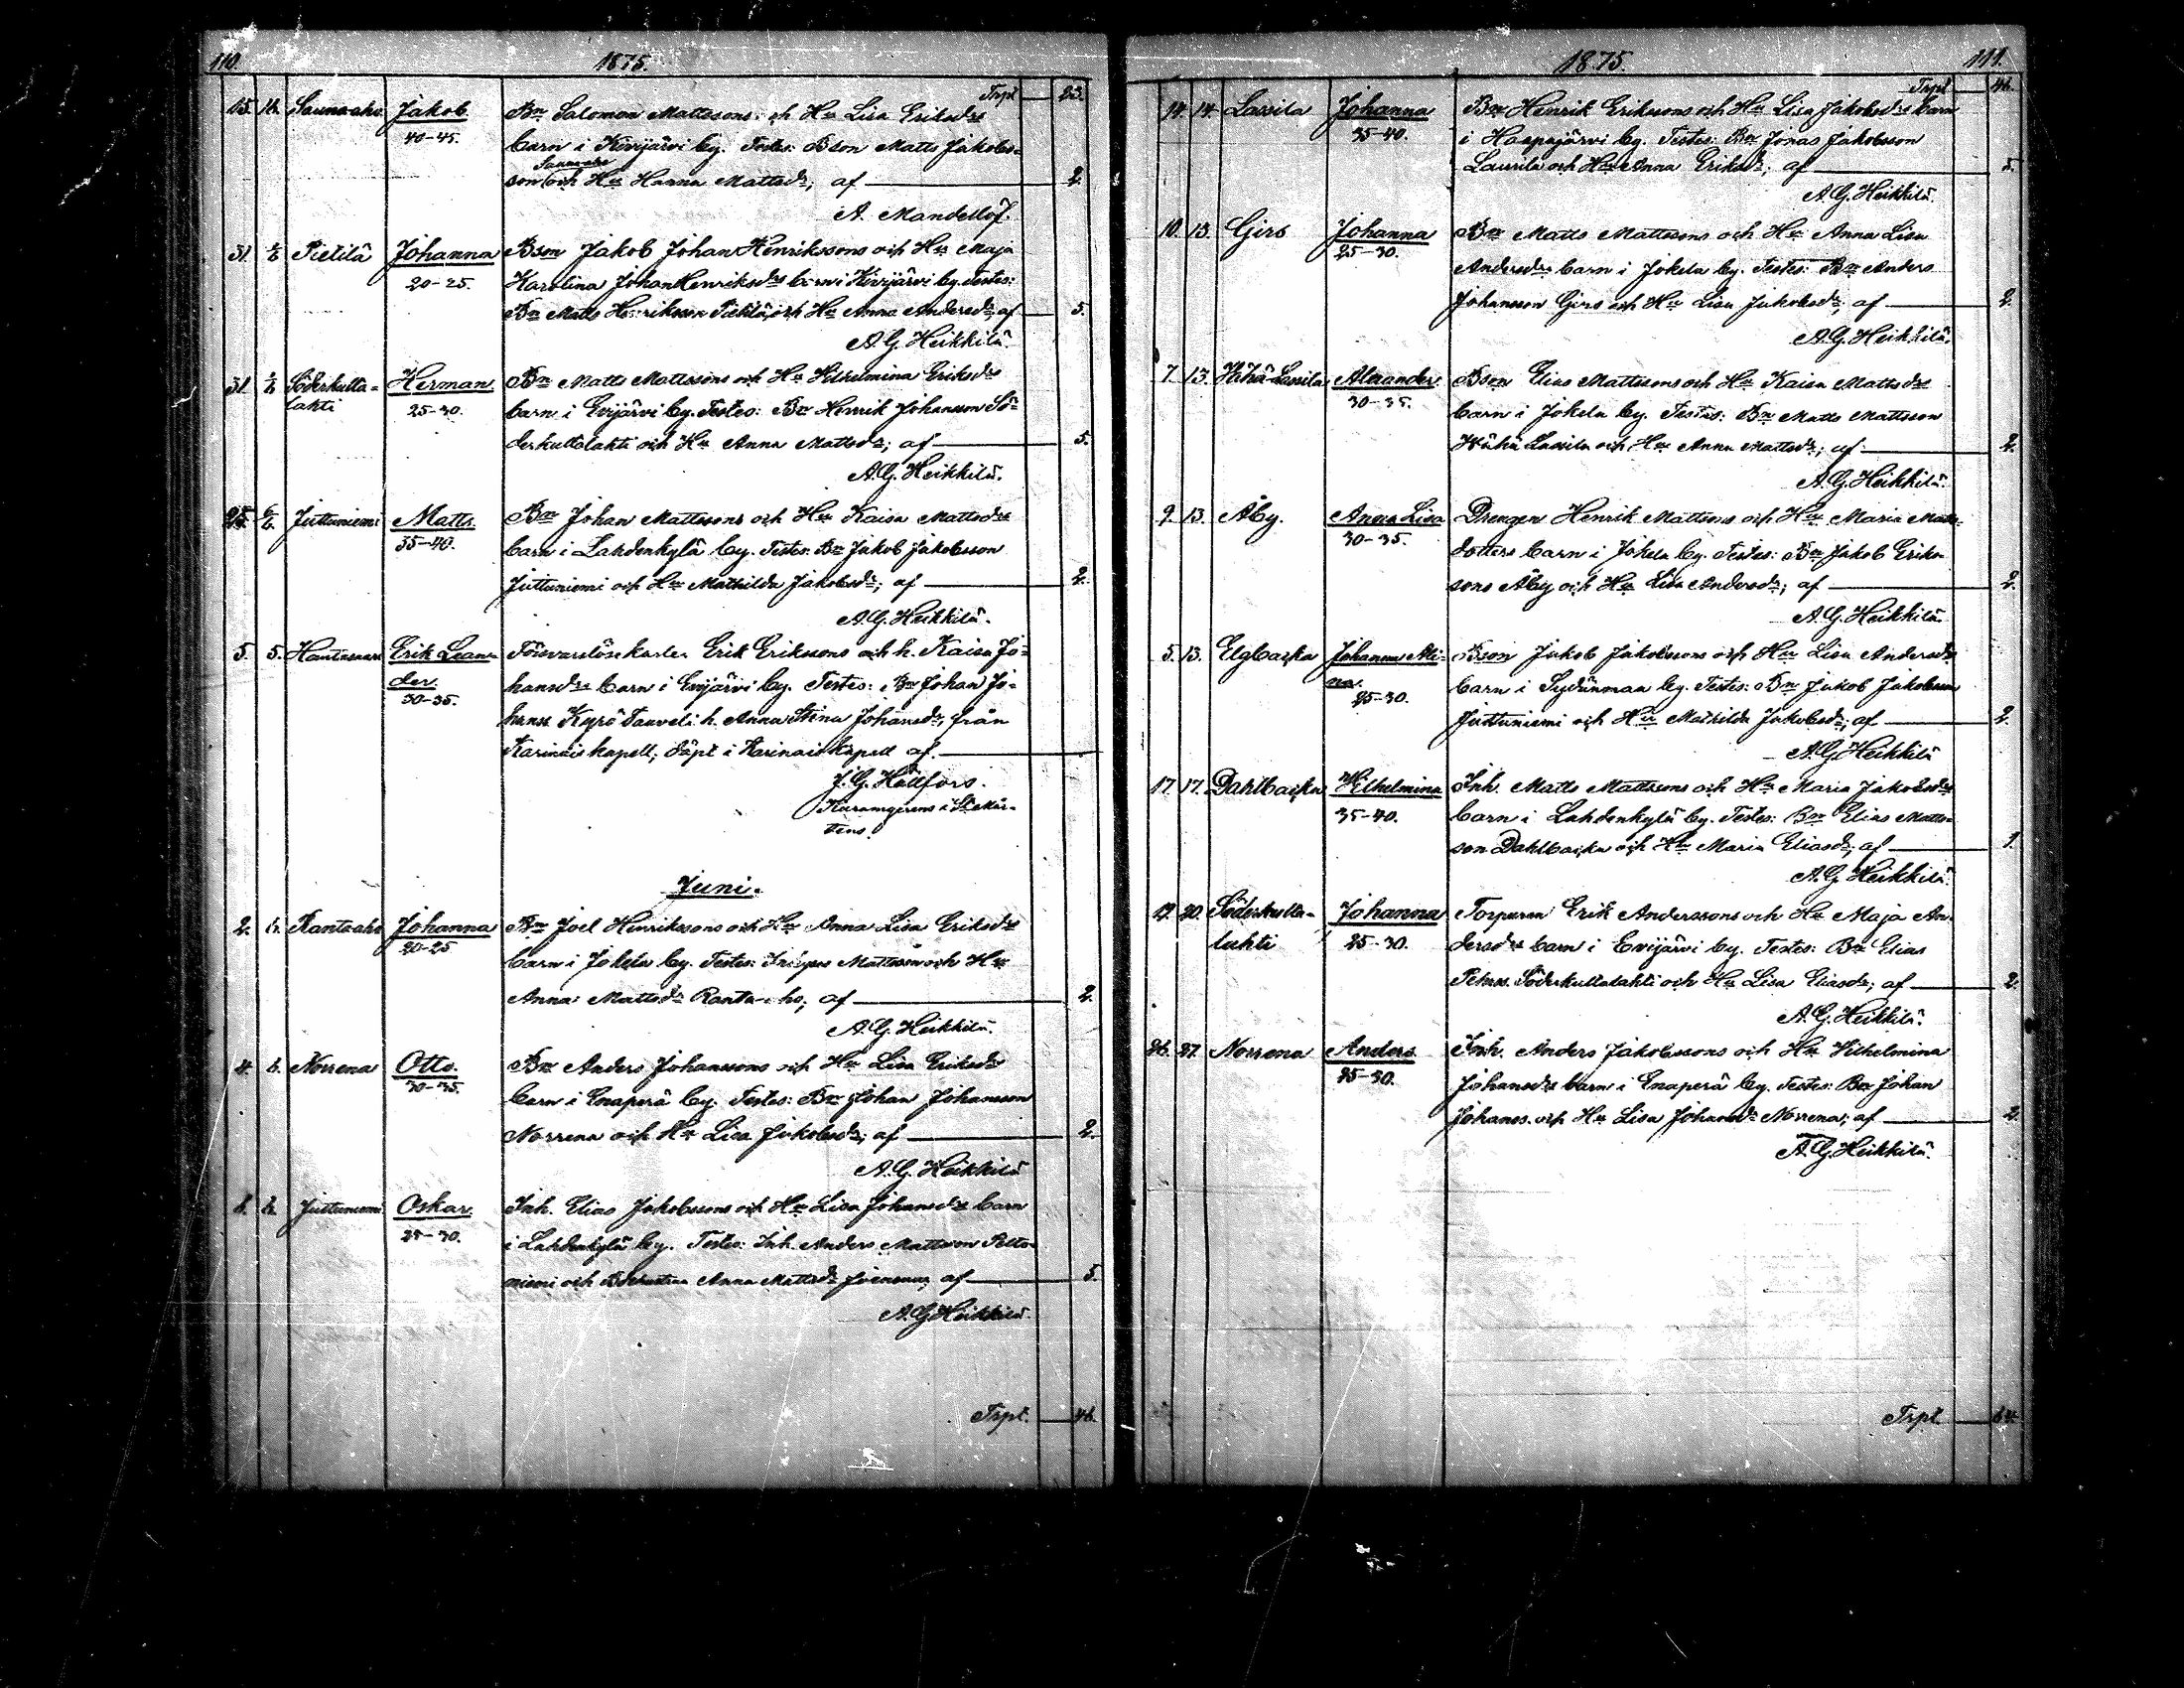 110. 1875.
Trpt 23.
15. 16. Saunaaho Jakob Bn Salomon Mattssons och Hu Lisa Eriksdrs
40-45. barn i Kivijärvi by. Testes: Bson Matts Jakobs-
Saunaaho
son och Hu Hanna Mattsdr; af 2.
A. Mandellöf.
31. 6/6 Pietilä Johanna Bson Jakob Johan Henrikssons och Hu Maja
20-25. Karolina Johan Henriksdrs barn i Kivijärvi by. Testes:
Bn Matts Henriksson Pietilä och Hu Anna Andersdr; af 5.
A.G. Heikkilä.
31. 6/6 Söderkulta- Herman Bn Matts Mattssons och Hu Wilhelmina Eriksdrs
lahti 25-30. barn i Evijärvi by. Testes: Bn Henrik Johansson Sö-
derkultalahti och Hu Anna Mattsdr; af 5.
A.G. Heikkilä.
25. 6/6 Juttuniemi Matts. Bn Johan Mattssons och Hu Kaisa Mattsdrs
35-40. barn i Lahdenkylä by. Testes: Bn Jakob Jakobsson
Juttuniemi och Hu Mathilda Jakobsdr; af 2.
A.G. Heikkilä.
5. 5. Erik Lean- Försvarslöse karlen Erik Erikssons och h. Kaisa Jo-
der. hansdrs barn i Evijärvi by. Testes: Bn Johan Jo-
30-35. hanss. Kyrö Tauveli h. Anna Stina Johansdr, från
Karinais kapell; döpt i Karinais kapell af
J.G. Hällfors.
i St Mår-
tens.
Juni.
2. 6. Rantaaho Johanna Bn Joel Henrikssons och Hu Anna Lisa Eriksdrs
20-25 barn i Jokela by. Testes: Mattsson och Hu
Anna Mattsdr Ranta-aho; af 2.
A.G. Heikkilä.
4. 6. Norrena Otto. Bn Anders Johanssons och Hu Lisa Eriksdrs
30-35. barn i Enaperä by. Testes: Bn Johan Johansson
Norrena och Hu Lisa Jakobsdr; af 2.
A.G. Heikkilä
6. 6. Juttuniemi Oskar. Inh. Elias Jakobssons och Hu Lisa Johansdrs barn
25-30. i Lahdenkylä by. Testes: Inh. Anders Mattsson Pelto-
niemi och Anna Mattsdr Joensuu; af 5.
A.G. Heikkilä.
Trpt. 46.
1875. 111.
Trpt 46.
14. 14. Lassila Johanna Bn Henrik Erikssons och Hu Lisa Jakobsdrs barn
35-40. i Haapajärvi by. Testes: Bn Jonas Jakobsson
Laurila och Hu Anna Eriksdr; af 5.
A.G. Heikkilä.
10. 13. Girs Johanna Bn Matts Mattssons och Hu Anna Lisa
25-30. Andersdrs barn i Jokela by. Testes: Bn Anders
Johansson Girs och Hu Lisa Jakobsdr; af 2.
A.G. Heikkilä.
7. 13. Wähä-Lassila Alexander Bson Elias Mattssons och Hu Kaisa Mattsdrs
30-35. barn i Jokela by. Testes: Bn Matts Mattsson
Wähä Lassila och Hu Anna Mattsdr; af 2.
A.G. Heikkilä.
9. 13. Åby. Anna Lisa Drengen Henrik Mattssons och Hu Maria Matts-
30-35. dotters barn i Jokela by. Testes: Bn Jakob Eriks-
sons Åby och Hu Lisa Andersdr; af 2.
A.G. Heikkilä.
5. 13. Elgbacka Johanna Mi- Bson Jakob Jakobssons och Hu Lisa Andersdrs
na. barn i Sydänmaa by. Testes: Bn Jakob Jakobsson
25-30. Juttuniemi och Hu Mathilda Jakobsdr; af 2.
A.G. Heikkilä
17. 17. Dahlbacka Wilhelmina Inh. Matts Mattssons och Hu Maria Jakobsdrs
35-40. barn i Lahdenkylä by. Testes: Bn Elias Matts-
son Dahlbacka och Hu Maria Eliasdr; af 1.
A.G. Heikkilä.
19. 20. Söderkulta- Johanna Torparen Erik Anderssons och Hu Maja An-
lahti 25-30. dersdrs barn i Evijärvi by. Testes: Bn Elias
Peterss. Söderkultalahti och Hu Lisa Eliasdr; af 2.
A.G. Heikkilä.
26. 27. Norrena Anders Inh. Anders Jakobssons och Hu Wilhelmina
25-30. Johansdrs barn i Enaperä by. Testes: Bn Johan
Johanss. och Hu Lisa Johansdr Norrena; af 2.
A.G. Heikkilä.
Trpt 64.